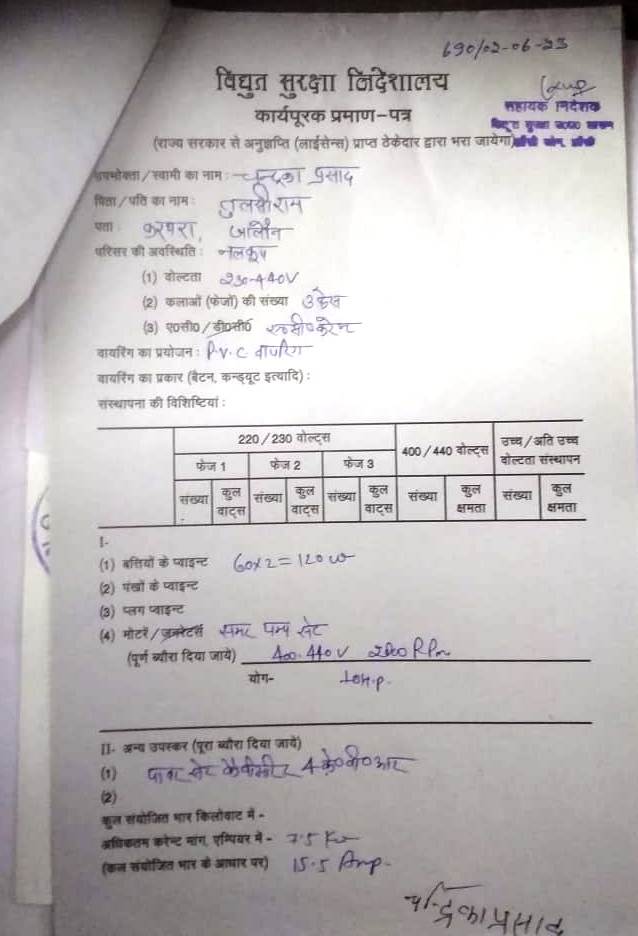 690/02-06-23
विद्युत सुरक्षा निदेशालय
कार्यपूरक प्रमाण-पत्र
सहायक निदेशक
(राज्य सरकार से अनुज्ञप्ति (लाईसेन्स) प्राप्त ठेकेदार द्वारा भरा जायेगा)
उपभोक्ता/स्वामी का नाम: चन्द्रिका प्रसाद
पिता/पति का नाम: तुलसीराम
पता: जालौन
परिसर की अवस्थिति: नलकूप
(1) वोल्टता 230-440V
(2) कलाओं (फेजों) की संख्या 3 फेस
(3) ए०सी०/डी०सी० ए०सी० करेन्ट
वायरिंग का प्रयोजन: P.V.C वायरिंग
वायरिंग का प्रकार (बैटन, कन्ड्यूट इत्यादि):
संस्थापना की विशिष्टियां:
220/230 वोल्ट्स 400/440 वोल्ट्स उच्च/अति उच्च वोल्टता संस्थापन
फेज 1 फेज 2 फेज 3
संख्या कुल वाट्स संख्या कुल वाट्स संख्या कुल वाट्स संख्या कुल क्षमता संख्या कुल क्षमता
I-
(1) बत्तियों के प्वाइन्ट 60x2=120w
(2) पंखों के प्वाइन्ट
(3) प्लग प्वाइन्ट
(4) मोटरें/जनरेटर्स समर पम्प सेट
(पूर्ण ब्यौरा दिया जाये) 400-440V RPm
योग- 10H.p.
II- अन्य उपस्कर (पूरा ब्यौरा दिया जाये)
(1) पावर सेट कैपीसीटर 4 के०वी०आर
(2)
कुल संयोजित भार किलोवाट में -
अधिकतम करेन्ट मांग, एम्पियर में - 7.5 Kw
(कुल संयोजित भार के आधार पर) 15.5 Amp.
चन्द्रिका प्रसाद